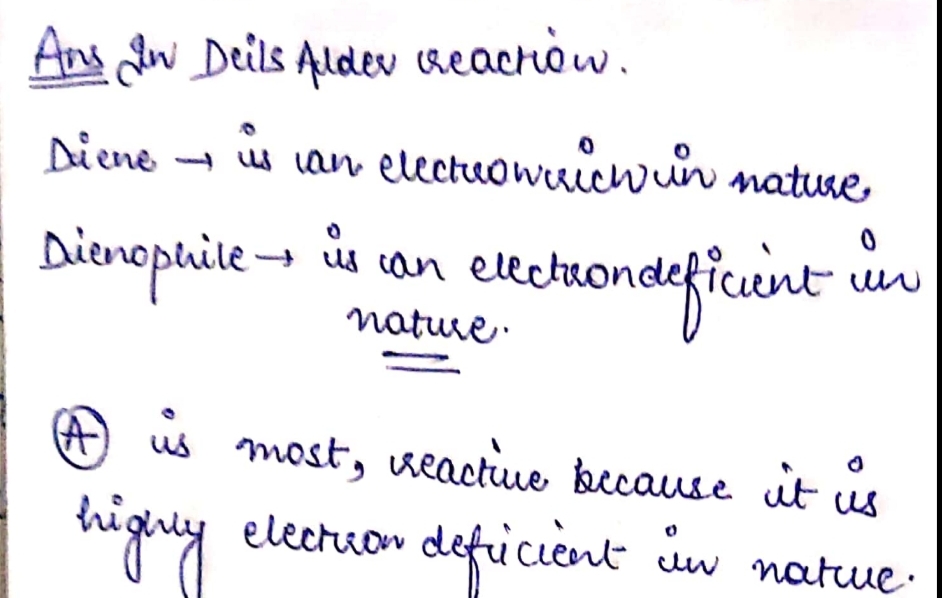 Ans In Deils Alder reaction.
Diene → is an electron rich in nature
Dienophile → is an electron deficient in
nature.
(A) is most, reactive because it is
highly electron deficient in nature.